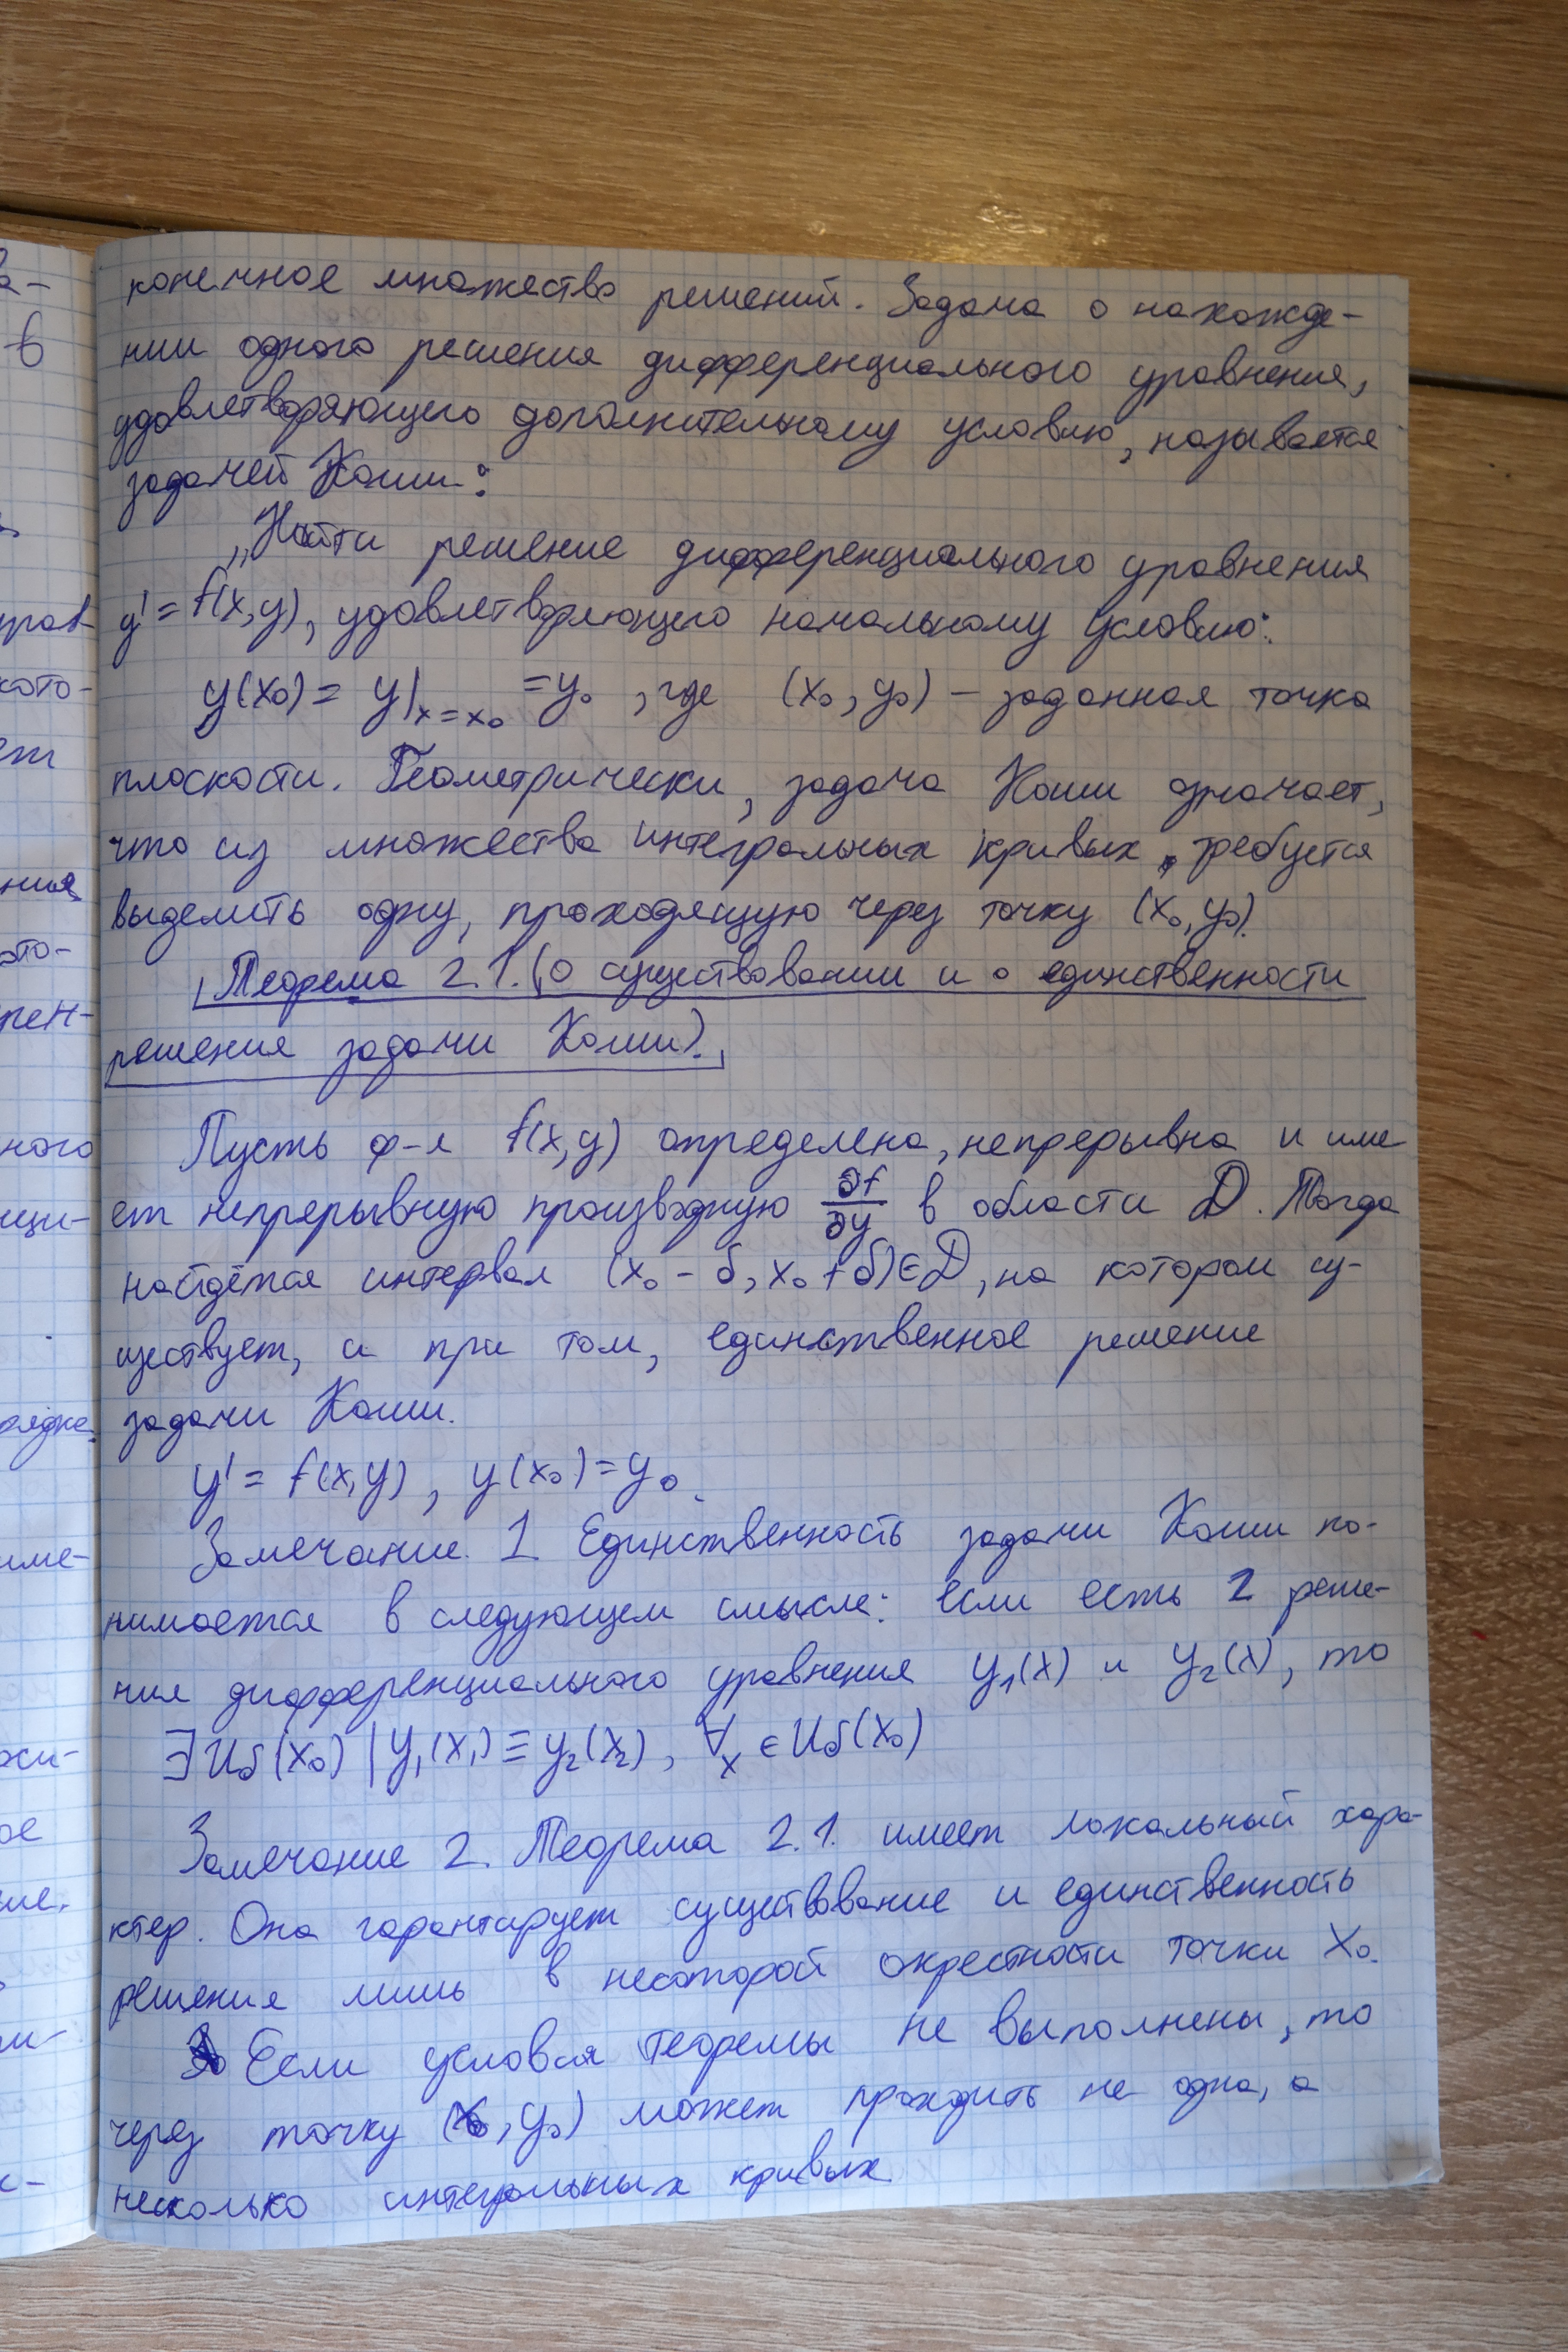 конечное множество решений. Задача о нахожде-
нии одного решения дифференциального уравнения,
удовлетворяющего дополнительному условию, называется
задачей Коши:
„Найти решение дифференциального уравнения
y' = f(x,y), удовлетворяющего начальному условию:
y(x₀) = y|ₓ₌ₓ₀ = y₀, где (x₀, y₀) – заданная точка
плоскости. Геометрически, задача Коши означает,
что из множества интегральных кривых, требуется
выделить одну, проходящую через точку (x₀, y₀).
Теорема 2.1. (О существовании и о единственности
решения задачи Коши).
Пусть ф-я f(x,y) определена, непрерывна и име
ет непрерывную производную ∂f/∂y в области D. Тогда
найдётся интервал (x₀ - δ, x₀ + δ) ∈ D, на котором су-
ществует, и при том, единственное решение
задачи Коши.
y' = f(x,y), y(x₀) = y₀.
Замечание. 1 Единственность задачи Коши по-
нимается в следующем смысле: если есть 2 реше-
ния дифференциального уравнения y₁(x) и y₂(x), то
∃ Uδ(x₀) | y₁(x₁) ≡ y₂(x₂), ∀x ∈ Uδ(x₀)
Замечание 2. Теорема 2.1. имеет локальный хара-
ктер. Она гарантирует существование и единственность
решения лишь в некоторой окрестности точки x₀.
Если условия теоремы не выполнены, то
через точку (x₀, y₀) может проходить не одна, а
несколько интегральных кривых